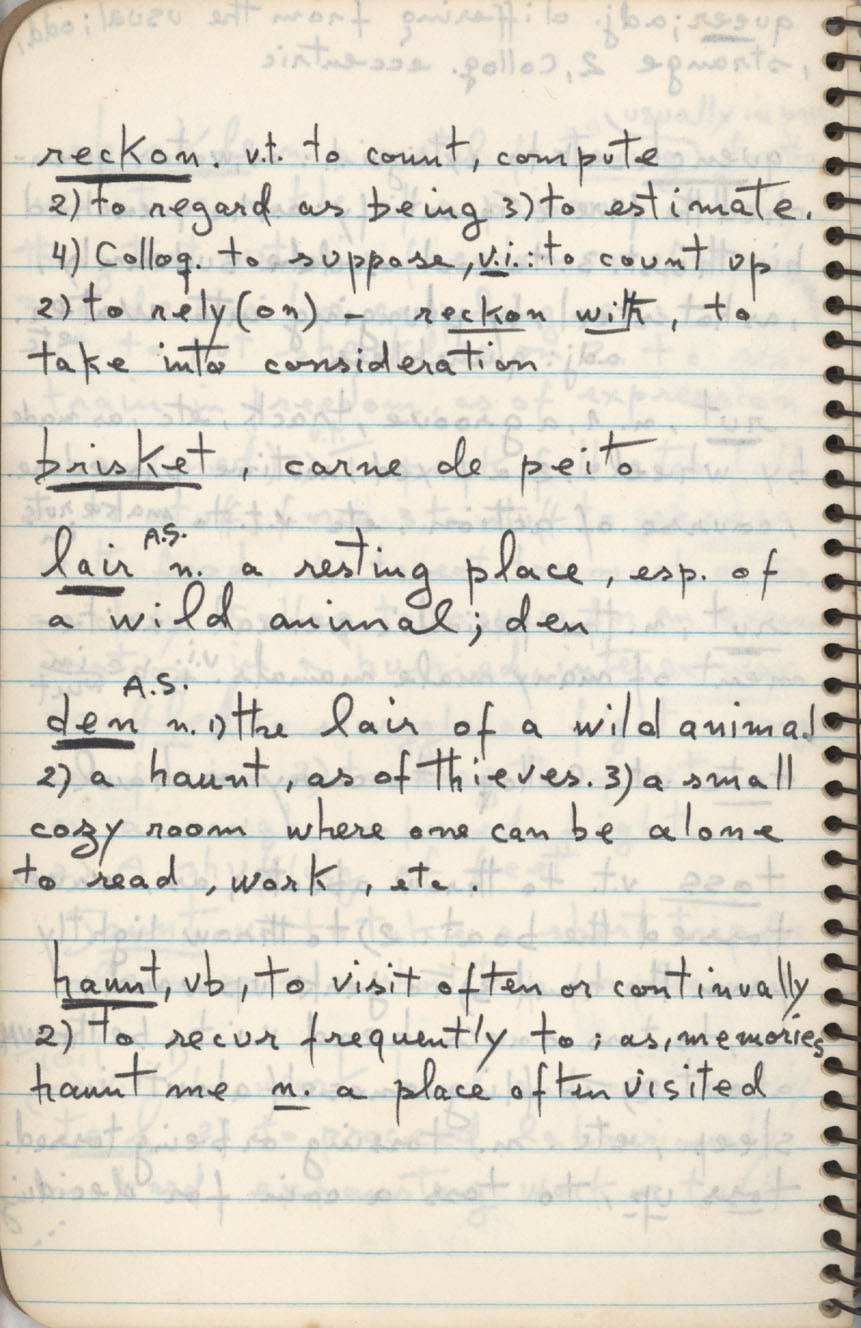 reckon. v.t. to count, compute
2) to regard as being 3) to estimate.
4) Colloq. to suppose, v.i.: to count up
2) to rely (on) – reckon with, to
take into consideration
brisket, carne de peito
lair A.S. n. a resting place, esp. of
a wild animal; den
den A.S. n. 1) the lair of a wild animal
2) a haunt, as of thieves. 3) a small
cozy room where one can be alone
to read, work, etc.
haunt, vb, to visit often or continually
2) to recur frequently to; as, memories
haunt me n. a place often visited